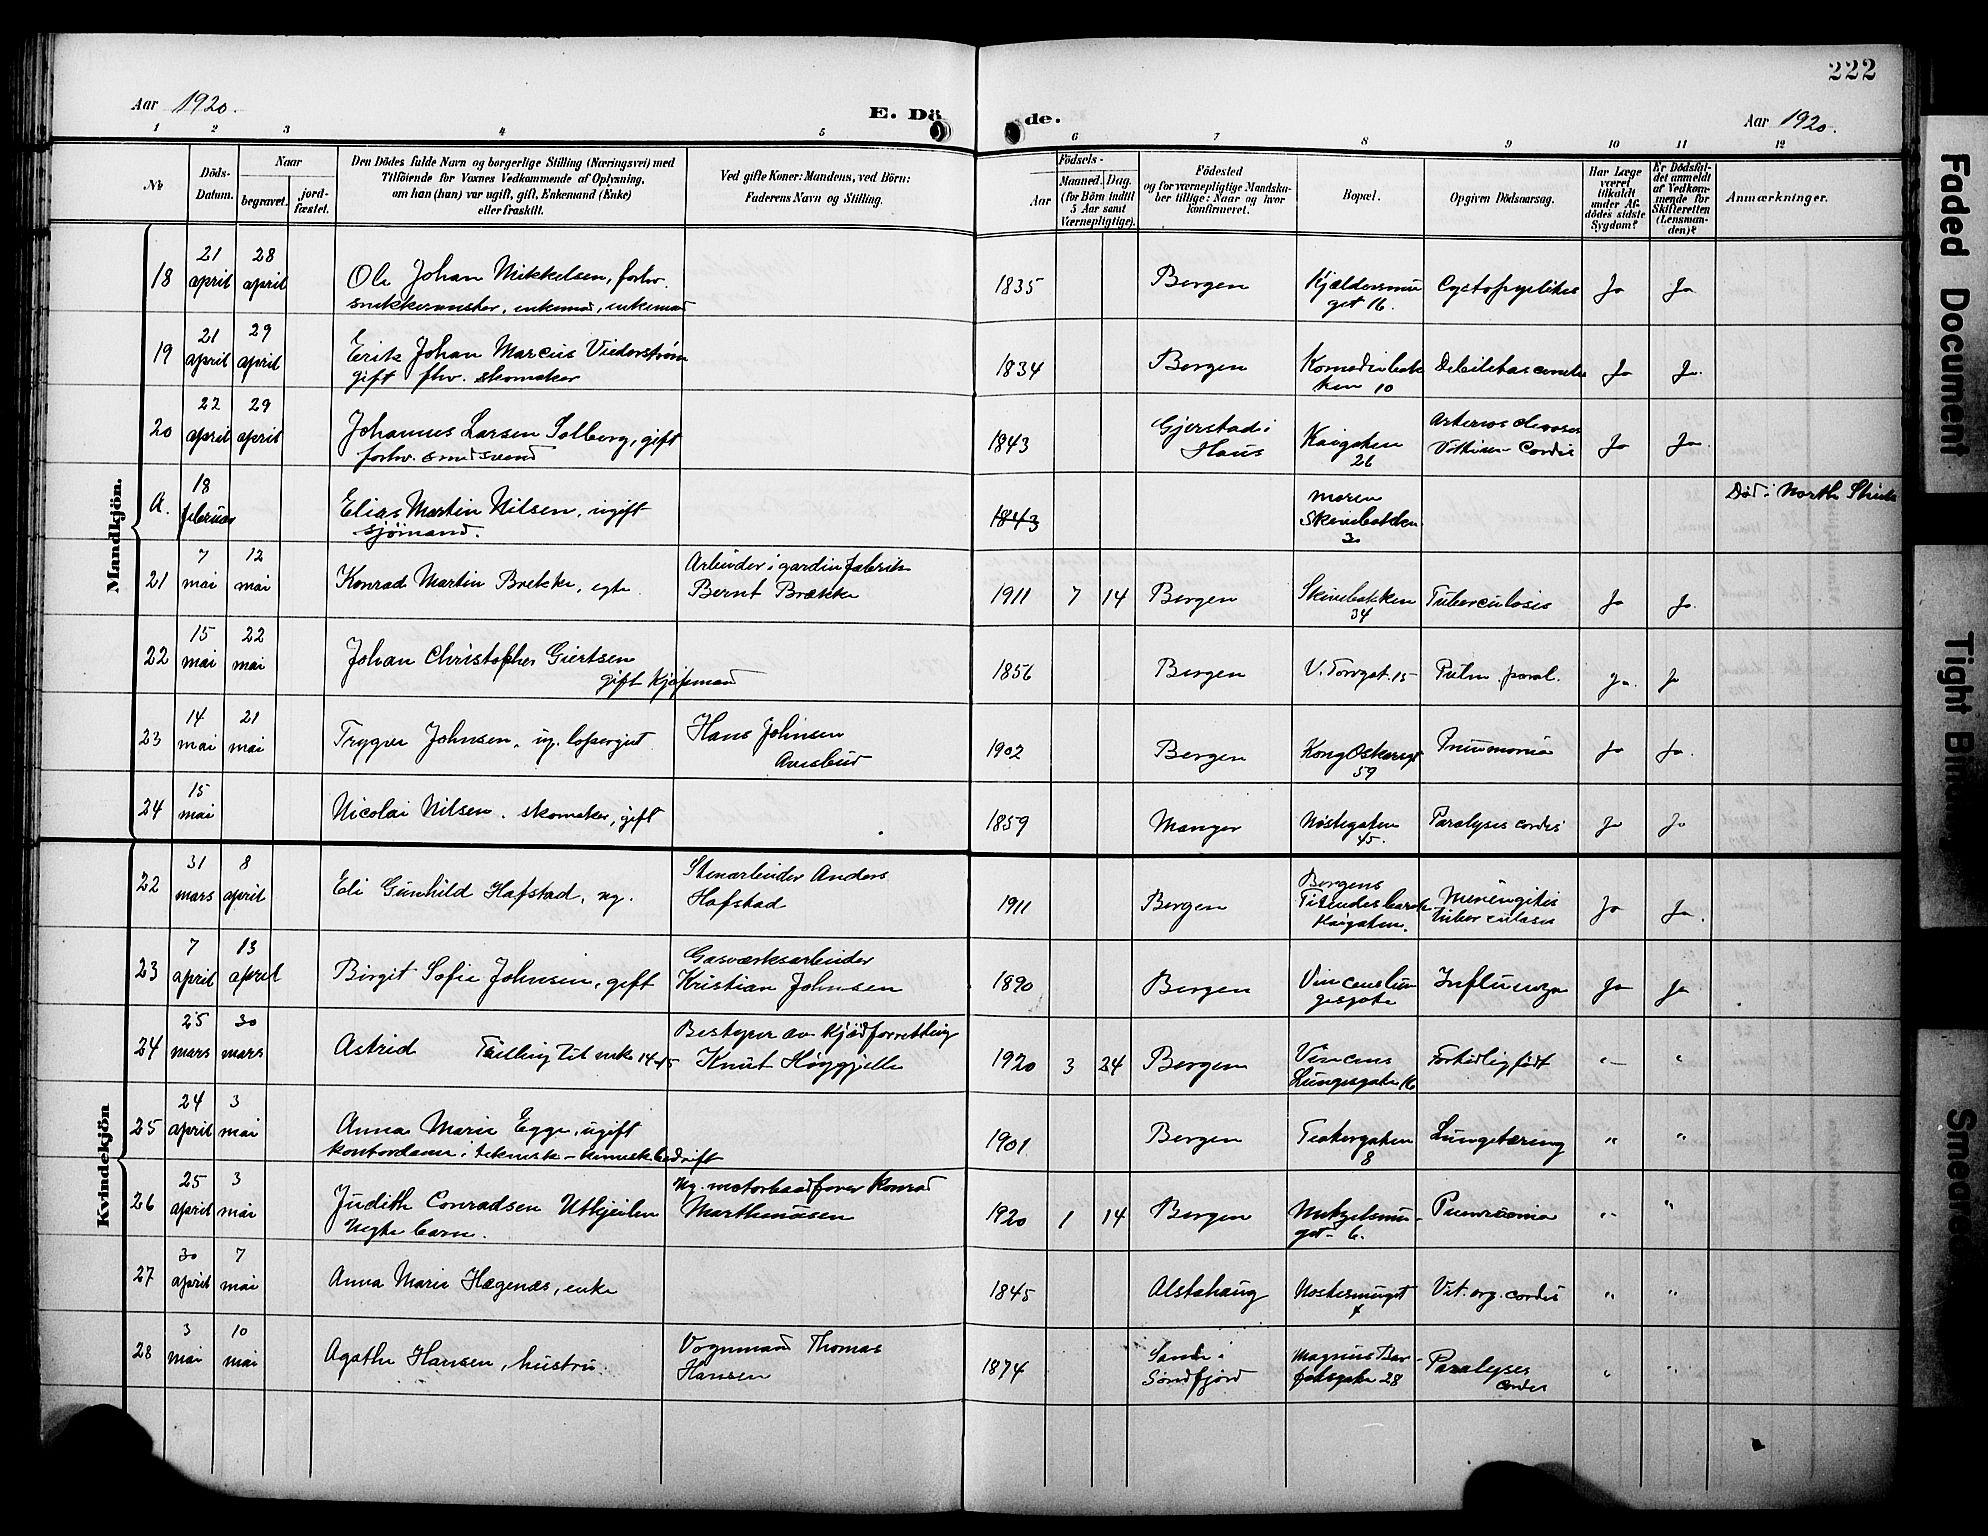 222
Aar 1920.
E. Dö
de.
Aar 1920.
1 2 3 4 5 6 7 8 9 10 11 12
No
Döds-Datum.
Naar
begravet.
jord-fæstet.
Den Dödes fulde Navn og borgerlige Stilling (Næringsvei) med
Tilföiende for Voxnes Vedkommende af Oplysning,
om han (hun) var ugift, gift, Enkemand (Enke)
eller fraskilt.
Ved gifte Koner: Mandens, ved Börn:
Faderens Navn og Stilling.
Födsels-
Aar
Maaned. Dag.
(for Börn indtil
5 Aar samt
Værnepligtige).
Födested
og for værnepligtige Mandska-
ber tillige: Naar og hvor
konfirmeret.
Bopæl.
Opgiven Dödsaarsag.
Har Læge
været
tilkaldt
under Af-
dödes sidste
Sygdom?
Er Dödsfal-
det anmeldt
af Vedkom-
mende for
Skifteretten
(Lensman-
den)?
Anmærkninger.
Mandkjön.
18 21 april 28 april Ole Johan Mikkelsen, forhv.
snekkermester, enkemand 1835 Bergen Kjældersmu
get 16. Cystopyelitis Ja Ja
19 21 april 29 april Erik Johan Marcus Viederstrøm
gift fhv. skomaker 1834 Bergen Komediebak
ken 10 Debilitas Ja Ja.
20 22 april 29 april Johannes Larsen Solberg, gift
forhv. smedsvend 1843 Gjerstad i
Haus Kaigaten
26 Cordis Ja Ja.
A. 18 februar Elias Martin Nilsen, ugift
sjømand. 1843 Maren
Skivebakken
3 Død i North
21 7 mai 12 mai Konrad Martin Brekke, egte Arbeider i gardinfabrik
Bernt Brække 1911 7 14 Bergen Skivebakken
34 Tuberculosis Ja Ja.
22 15 mai 22 mai Johan Christopher Giertsen
gift Kjøpmand 1856 Bergen V. Torvgt. 15 Pulm. paral. Ja. Ja
23 14 mai 21 mai Trygve Johnsen, ug. løpergut Hans Johnsen
Avisbud 1902 Bergen Kong Oskarsgt
59 Pneumonia Ja Ja.
24 15 mai Nicolai Nilsen, skomaker, gift 1859 Manger Nøstegaten
45. Paralysis cordis Ja Ja
Kvindekjön
22 31 mars 8 april Eli Gunhild Hafstad, ug. Stenarbeider Anders
Hafstad 1911 Bergen Bergens
Kaigaten. Meningitis
tuberculosa Ja Ja.
23 7 april 13 april Birgit Sofie Johnsen, gift Gasværksarbeider
Kristian Johnsen 1890 Bergen Vincenslun
gesgate Influenza Ja Ja
24 25 mars 30 mars Astrid Tvilling til 14-15 Bestyrer av Kjødforretning
Knut Høggjelle 1920 3 24 Bergen Vincens
Lungesgate 16 Fortidlig født " "
25 24 april 3 mai Anna Marie Egge, ugift
kontordame i teknisk-kemisk bedrift 1901 Bergen Teatergaten
8 Lungetæring " "
26 25 april 3 mai Judith Conradsen Utkjeilen
Uegte barn. Ug. motorbaadfører Konrad
Marthinusen 1920 1 14 Bergen Mutzelsmu-
get 6. Pneumonia " "
27 30 april 7 mai Anna Marie Hægenæs, enke 1845 Alstahaug Nøstesmuget
4 Vit. org. cordis " "
28 3 mai 10 mai Agathe Hansen, hustru Vognmand Thomas
Hansen 1874 Sande i
Søndfjord Magnus Bar-
fotsgate 28 Paralyses
cordis " "
Faded Document
Tight Bin
Smeared